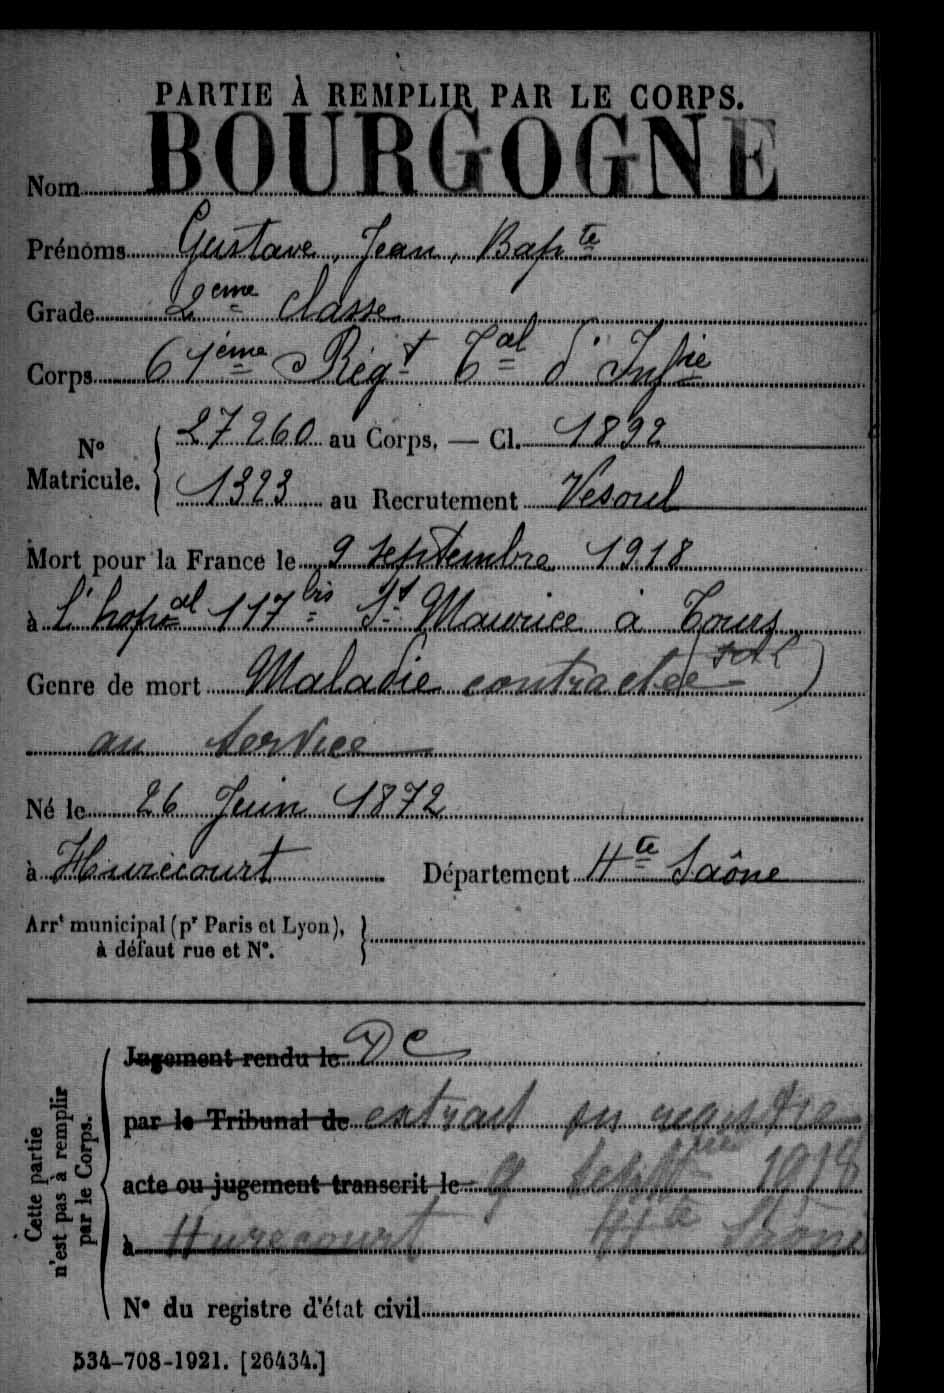 PARTIE À REMPLIR PAR LE CORPS.
Nom BOURGOGNE
Prénoms Gustave, Jean, Bapte
Grade 2ème classe
Corps 61ème Régt Tal d'Infie
No Matricule. { 27260 au Corps. — Cl. 1892
1323 au Recrutement Vesoul
Mort pour la France le 9 septembre 1918
à l'hopal 117 bis St Maurice à Tours
Genre de mort Maladie contractée
au service
Né le 26 Juin 1872
à Hurecourt Département Hte Saône
Arrt municipal (pr Paris et Lyon),
à défaut rue et No. }
Cette partie n'est pas à remplir par le Corps.
Jugement rendu le
par le Tribunal de extrait du registre
acte ou jugement transcrit le 9 1918
à Hurecourt Hte Saône
No du registre d'état civil
534-708-1921. [26434.]